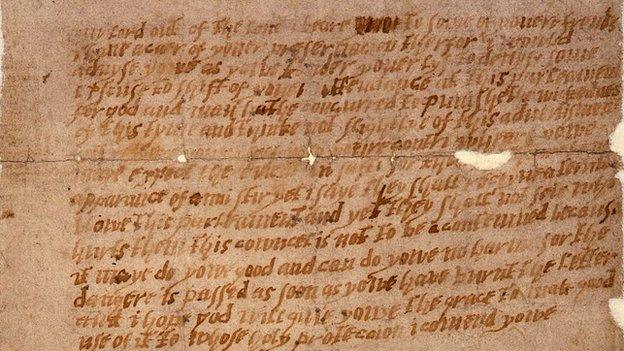 lord out of the love i beare to some of youere frends
i have a caer of youer preservacion therfor i would
advyse yowe as yowe tender youer lyf to devyse some
excuse to shift of youer attendance at this parleament
for god and man hathe concurred to punishe the wickednes
of this tyme and thinke not slightlye of this advertisment
youre contri wheare yowe
maye expect the event in safti for
apparance of anni stir yet i saye they shall receyve a terrible
blowe this parleament and yet they shall not seie who
hurts them this cowncel is not to be contemned because
it maye do yowe good and can do yowe no harme for the
dangere is passed as soon as yowe have burnt the letter
and i hope god will give yowe the grace to mak good
use of it to whose holy proteccion i comend yowe